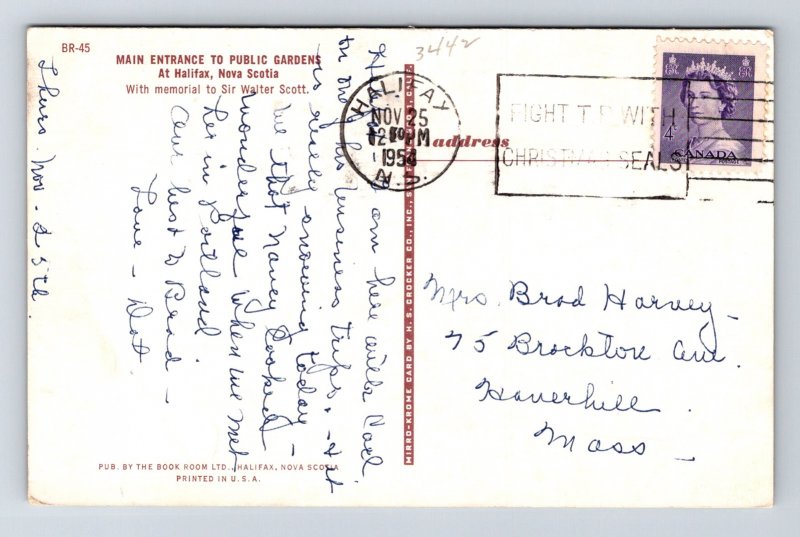 BR-45
MAIN ENTRANCE TO PUBLIC GARDENS
At Halifax, Nova Scotia
With memorial to Sir Walter Scott.
Thurs. Nov. 25th.
am here with Carl
on one of his business trips. - & it
is really snowing today -
We that Nancy looked
wonderful when we met
her in Portland.
Our best to Brad -
Love - Dot.
PUB. BY THE BOOK ROOM LTD., HALIFAX, NOVA SCOTIA
PRINTED IN U.S.A.
MIRRO-KROME CARD BY H.S. CROCKER CO., INC., CALIF.
3442
HALIFAX
NOV 25
PM
1954
N.S.
address
FIGHT T.B. WITH
CHRISTMAS SEALS
4¢
CANADA
Mrs. Brad Harvey -
75 Brockton Ave.
Haverhill
Mass -